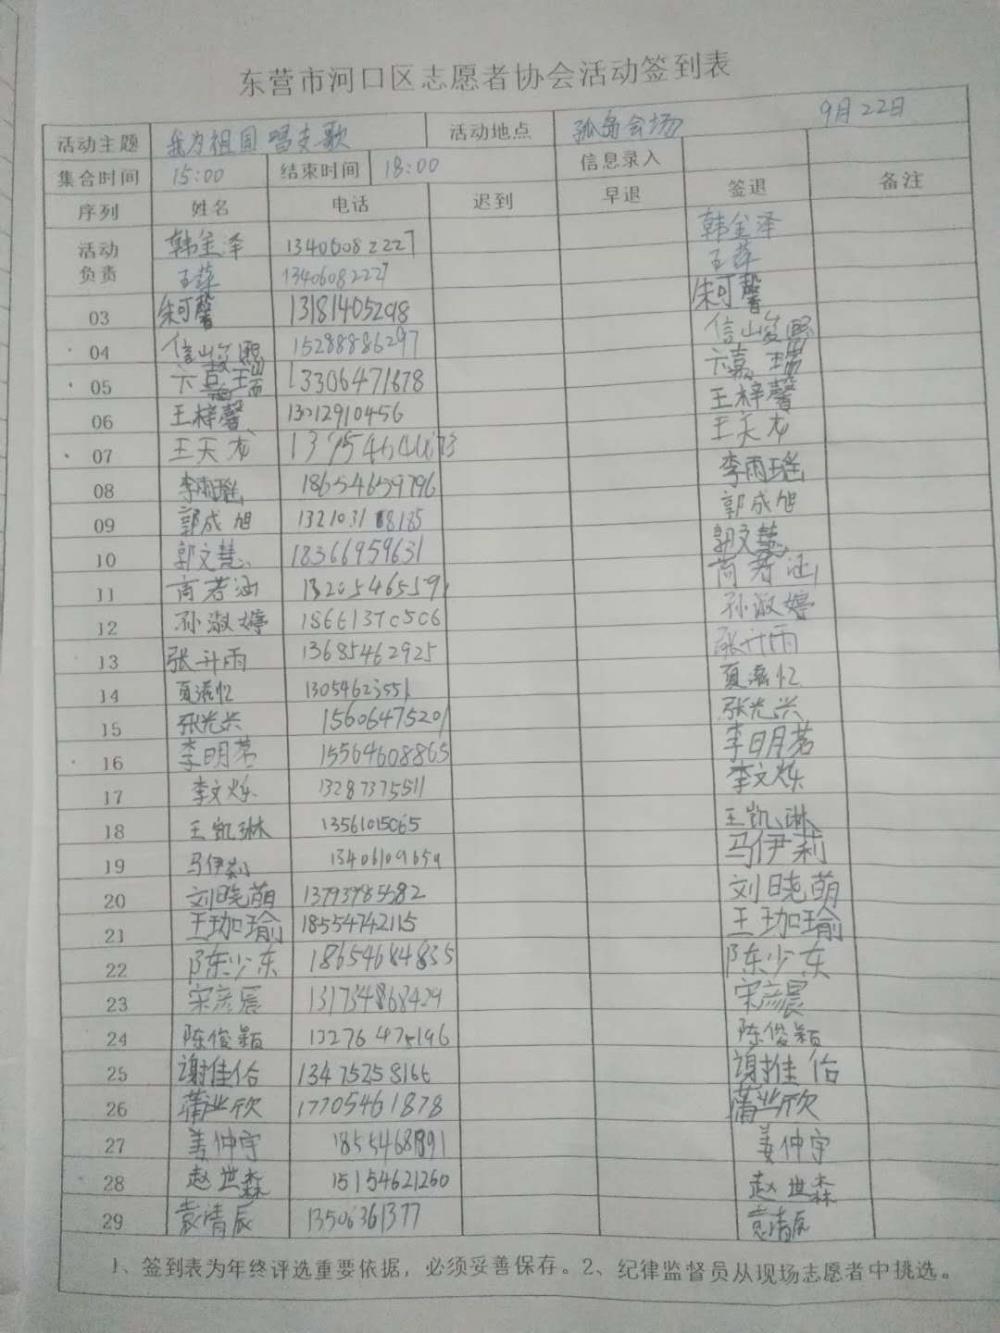 东营市河口区志愿者协会活动签到表
9月22日
活动主题 我为祖国唱支歌 活动地点 孤岛会场
集合时间 15:00 结束时间 18:00 信息录入
序列 姓名 电话 迟到 早退 签退 备注
活动负责 韩金泽 13406082227 韩金泽
王萍 13406082227 王萍
03 朱可馨 13181405298 朱可馨
04 信山峻熙 15288886297 信山峻熙
05 嘉瑞 13306471678 嘉瑞
06 王梓馨 13012910456 王梓馨
07 王天龙 王天龙
08 李雨瑶 18654659796 李雨瑶
09 郭成旭 郭成旭
10 郭文慧 18366959631 郭文慧
11 商若涵 13205465591 商若涵
12 孙淑婷 18661370506 孙淑婷
13 张升雨 13685462925 张升雨
14 夏忆 13054623551 夏忆
15 张光兴 15606475201 张光兴
16 李明茗 15564608865 李明茗
17 李文烁 13287375511 李文烁
18 王凯琳 13561015065 王凯琳
19 马伊莉 马伊莉
20 刘晓萌 刘晓萌
21 王珈瑜 18554742115 王珈瑜
22 陈少东 18654684835 陈少东
23 宋彦晨 宋彦晨
24 陈俊颖 13276475196 陈俊颖
25 谢佳佁 13475258166 谢佳佁
26 蒲业欣 17705461878 蒲业欣
27 姜仲宇 姜仲宇
28 赵世森 15154621260 赵世森
29 袁清辰 13506361377 袁清辰
1、签到表为年终评选重要依据，必须妥善保存。2、纪律监督员从现场志愿者中挑选。